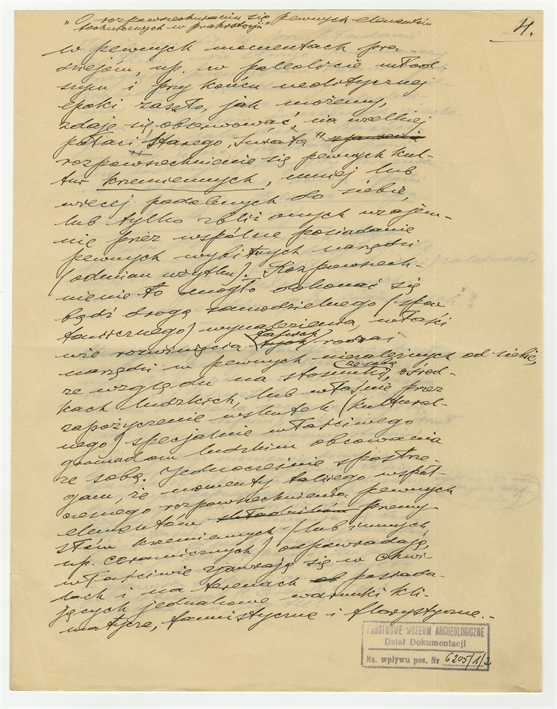 "O rozpowszechnianiu się pewnych elementów
technicznych w prahistorji"
4.
W pewnych momentach pra-
dziejów, np. w paleolicie młod-
szym i przy końcu neolitycznej
epoki zaszło, jak możemy,
zdaje się, obserwować, na wielkiej
połaci "Starego Świata"
rozpowszechnienie się pewnych kul-
tur krzemiennych, mniej lub
więcej podobnych do siebie,
lub tylko zbliżonych wzajem-
nie przez wspólne posiadanie
pewnych wybitnych narzędzi
(odmian użytku). Rozpowszech-
nienie to mogło dokonać się
bądź drogą samodzielnego (spon-
tanicznego) wynalezienia, właści-
wie rozwinięcia rodzai
narzędzi w pewnych niezależnych od siebie,
ze względu na środ-
kach ludzkich, lub właśnie przez
zapożyczenie wskutek (kultural-
nego) specjalnie właściwego
gromadom ludzkim obcowania
ze sobą. Jednocześnie spostrze-
gam, że momenty takiego współ-
czesnego rozpowszechnienia pewnych
elementów przemy-
słów krzemiennych (lub innych,
np. ceramicznych) odpowiadają,
właściwie zjawiają się w chwi-
lach i na terenach posiada-
jących jednakowe warunki kli-
matyczne, faunistyczne i florystyczne.-
PAŃSTWOWE MUZEUM ARCHEOLOGICZNE
Dział Dokumentacji
Ks. wpływu poz. Nr 6205/1/2